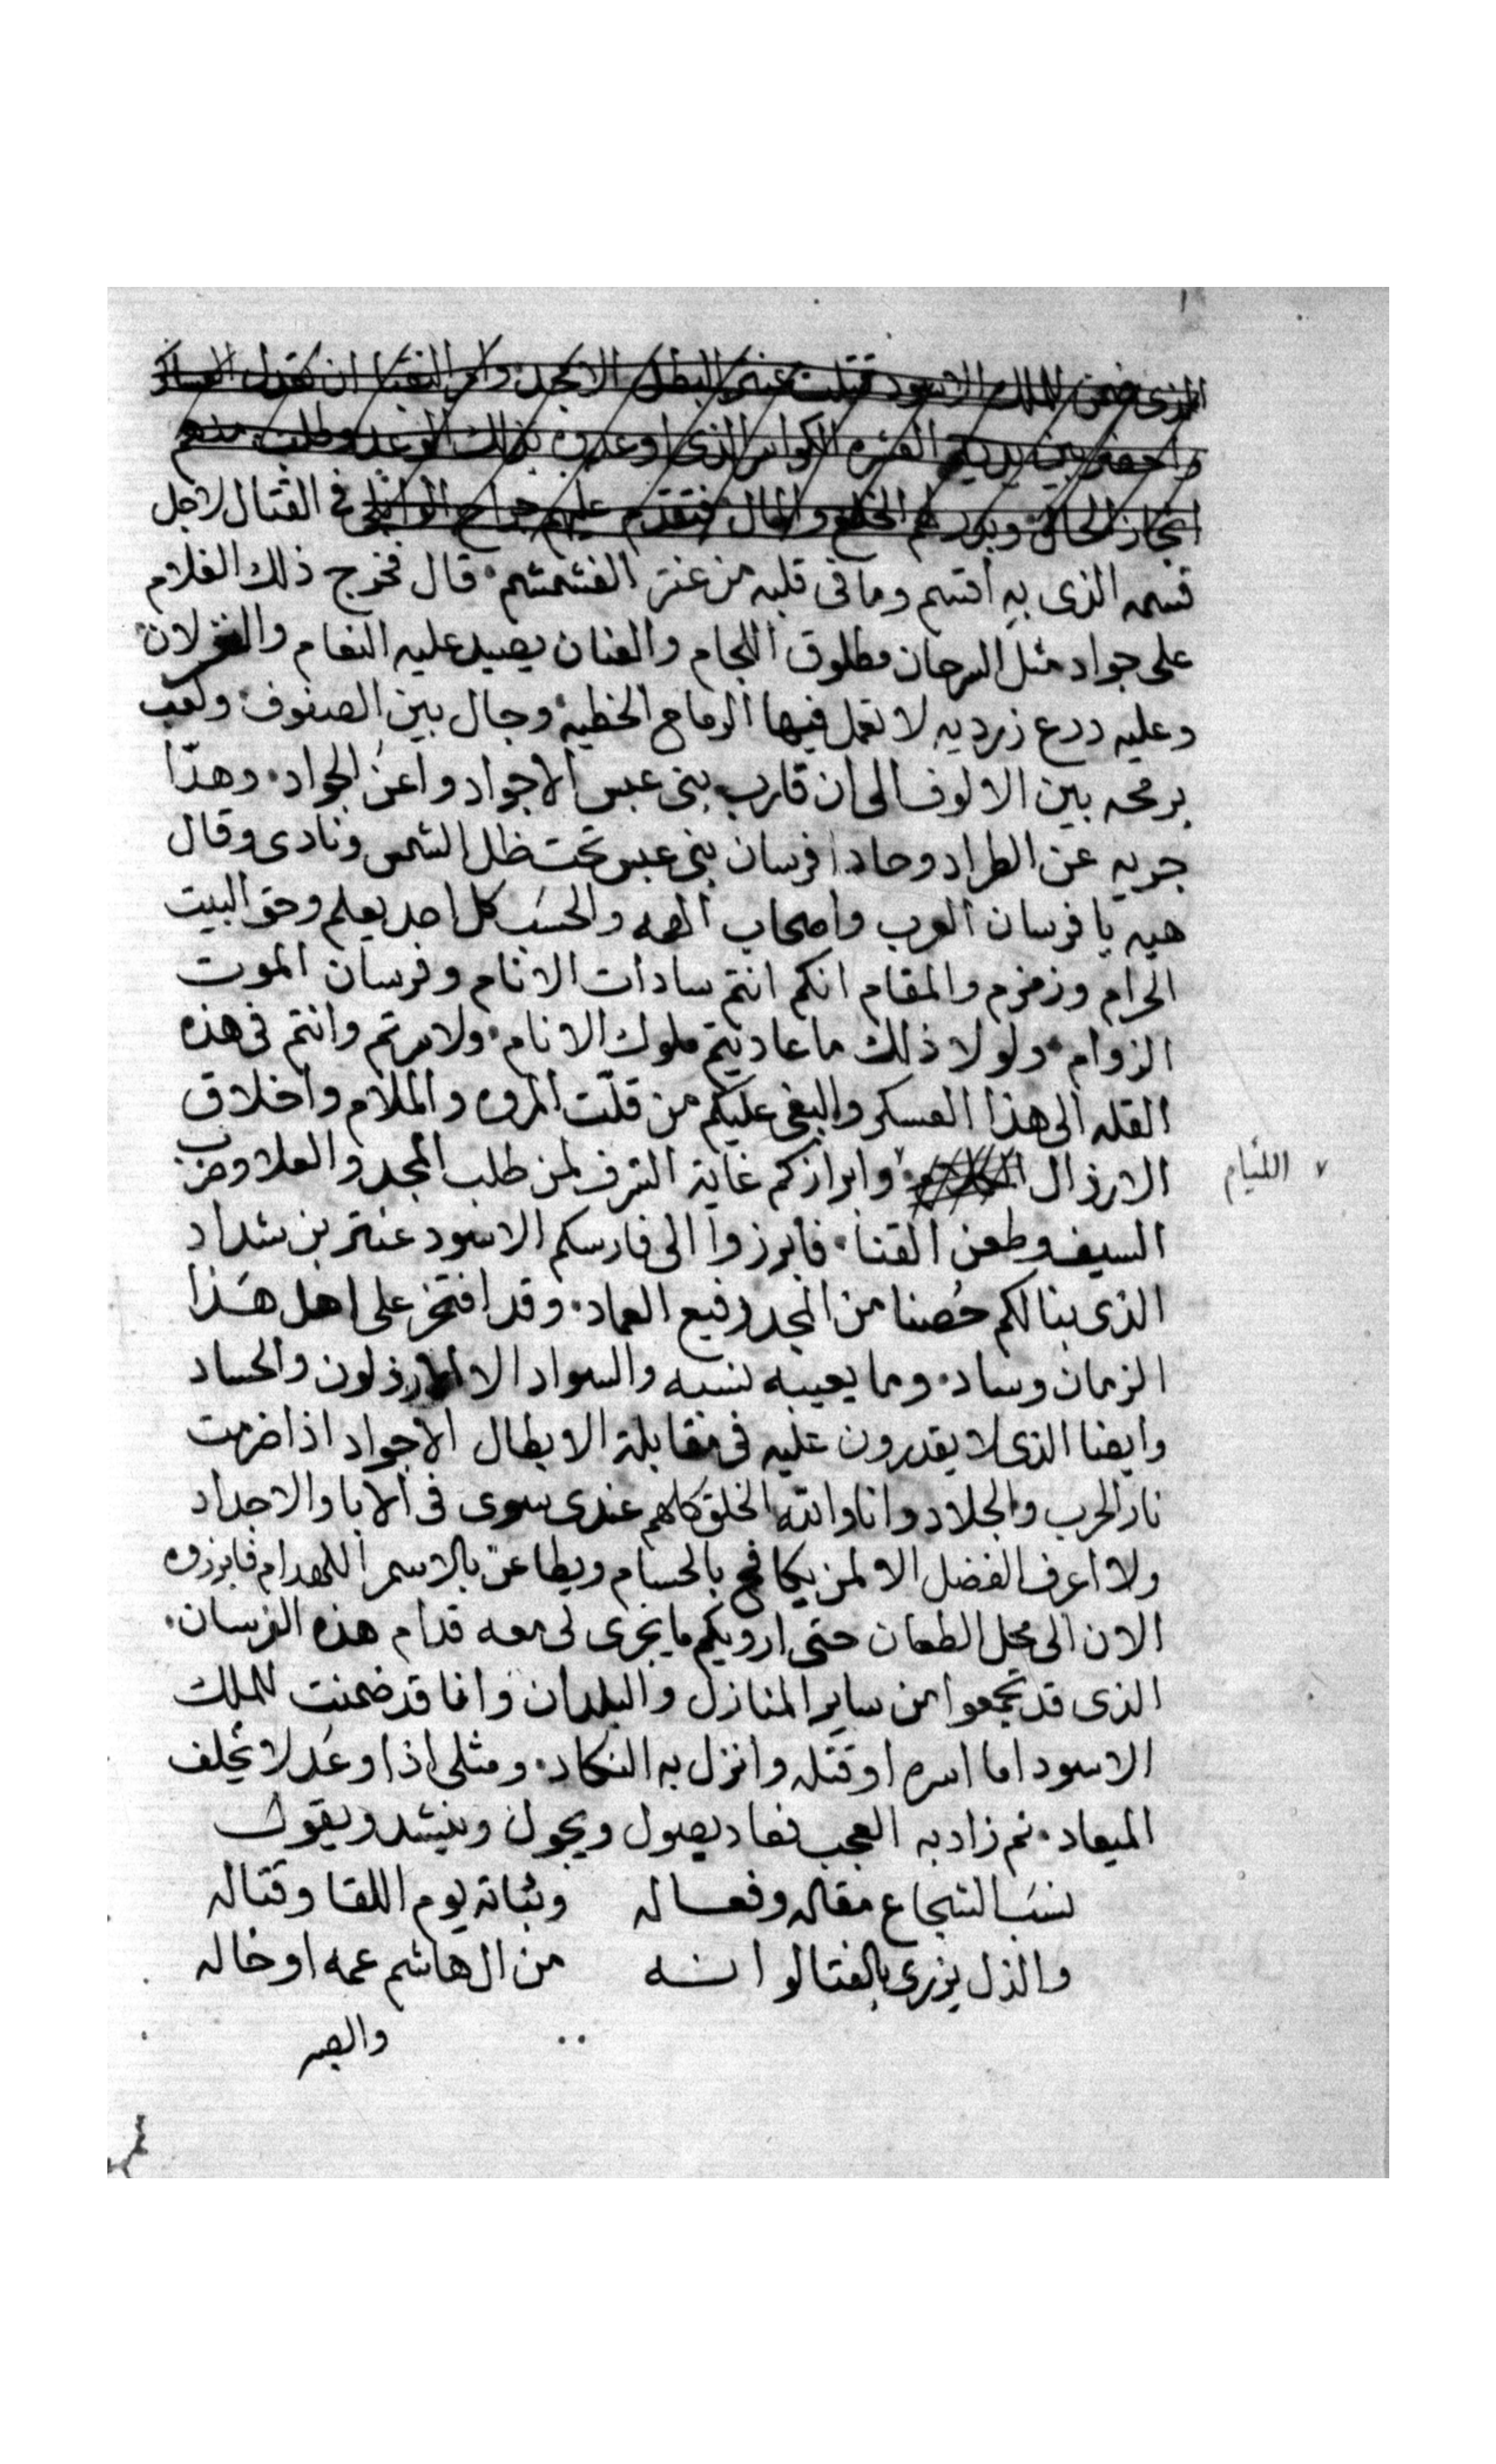 الذى ضمن للملك الاسود قتلت عنتر البطل الامجد وامر النقبا ان تعدل العساكر
واحضر بين يديه العشره الكواسر الذى اوعدوه بذلك الوعد وطلب منهم
انجاز الحال وبدر لهم الخلع والمال فتقدم عليهم جراح الوايلى فى القتال لاجل
قسمه الذى به اقسم وما فى قلبه من عنتر الغشمشم قال فخرج ذلك الغلام
على جواد مثل السرحان مطلوق اللجام والعنان يصيد عليه النعام والغزلان
وعليه درع زرديه لا تعمل فيها الرماح الخطيه وجال بين الصفوف ولعب
برمحه بين الالوف الى ان قارب بنى عبس الاجواد واعن الجواد وهدّا
جريه عن الطراد وحادا فرسان بنى عبس تحت ظل الشمس ونادى وقال
هيه يا فرسان العرب واصحاب الهمه والحسَب كل احد يعلم وحق البيت
الحرام وزمزم والمقام انكم انتم سادات الانام وفرسان الموت
الزوام ولولا ذلك ما عاديتم ملوك الانام ولا سرتم وانتم فى هذه
القله الى هذا العسكر والبغى عليكم من قلّت المروه والملام واخلاق
الارذال وابرازكم غاية الشرف لمن طلب المجد والعلا وضرب
اللئيام
السيف وطعن القنا فابرزوا الى فارسكم الاسود عنتر بن شداد
الذى بنا لكم حُصنا من المجد رفيع العماد وقد افتخر على اهل هَذا
الزمان وساد وما يعيبه نسبه والسواد الا الارذلون والحساد
وايضا الذى لا يقدرون عليه فى مقابلة الابطال الاجواد اذا ضرمت
نار الحرب والجلاد وانا والله الخلق كلهم عندى سوى فى الابا والاجداد
ولا اعرف الفضل الا لمن يكافح بالحسام ويطاعن بالاسمر اللهدام فابرزوه
الان الى محل الطعان حتى ارويكم ما يجرى لى معه قدام هذه الفرسان
الذى قد تجمعوا من ساير المنازل والبلدان وانا قد ضمنت للملك
الاسود اما اسره او قتله وانزل به النكاد ومثلى اذا وعَد لا يخلف
الميعاد ثم زاد به العجب فعاد يصول ويجول وينشد ويقول
نسَب الشجاع مقاله وفعاله وثباته يوم اللقا وقتاله
والذل يزرى بالفتا لو انه من ال هاشم عمه او خاله
والصبر